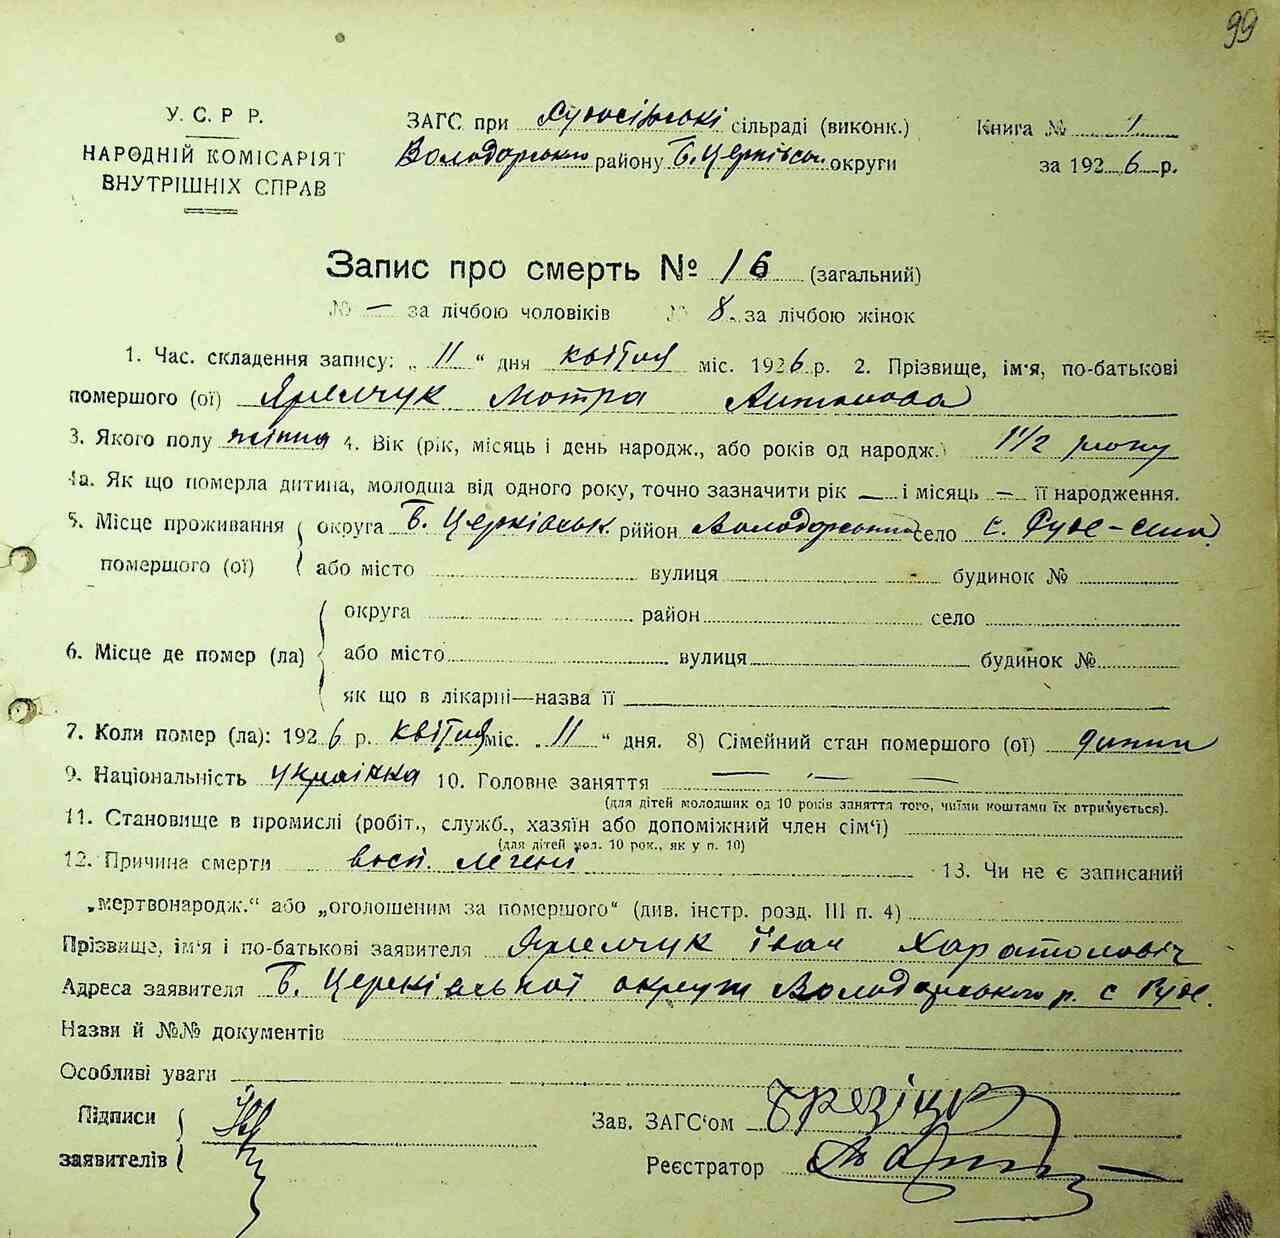 99
У. С. Р Р.
НАРОДНІЙ КОМІСАРІЯТ
ВНУТРІШНІХ СПРАВ
ЗАГС при сільраді (виконк.)
Володарського району Б. Церківськ. округи
Книга № 1
за 1926 р.
Запис про смерть № 16 (загальний)
№ — за лічбою чоловіків № 8 за лічбою жінок
1. Час. складення запису: „ 11 “ дня квітня міс. 1926 р. 2. Прізвище, ім'я, по-батькові
помершого (ої) Яремчук Мотра Антонова
3. Якого полу 4. Вік (рік, місяць і день народж., або років од народж.) 1 1/2 року
4а. Як що померла дитина, молодша від одного року, точно зазначити рік — і місяць — її народження.
5. Місце проживання помершого (ої) округа Б. Церківськ. район село с. Руде-село
або місто вулиця - будинок №
6. Місце де помер (ла) округа район село
або місто вулиця будинок №
як що в лікарні—назва її
7. Коли помер (ла): 1926 р. квітня міс. „ 11 “ дня. 8) Сімейний стан помершого (ої) дитина
9. Національність українка 10. Головне заняття — — —
(для дітей молодших од 10 років заняття того, чиїми коштами їх втримується).
11. Становище в промислі (робіт., служб., хазяїн або допоміжний член сім'ї)
(для дітей мол. 10 рок., як у п. 10)
12. Причина смерти восп. легені 13. Чи не є записаний
„мертвонародж.“ або „оголошеним за помершого“ (див. інстр. розд. III п. 4)
Прізвище, ім'я і по-батькові заявителя Яремчук Іван
Адреса заявителя Б. Церківської округи Володарського р. с Руде.
Назви й №№ документів
Особливі уваги
Підписи
заявителів
Зав. ЗАГС'ом
Реєстратор